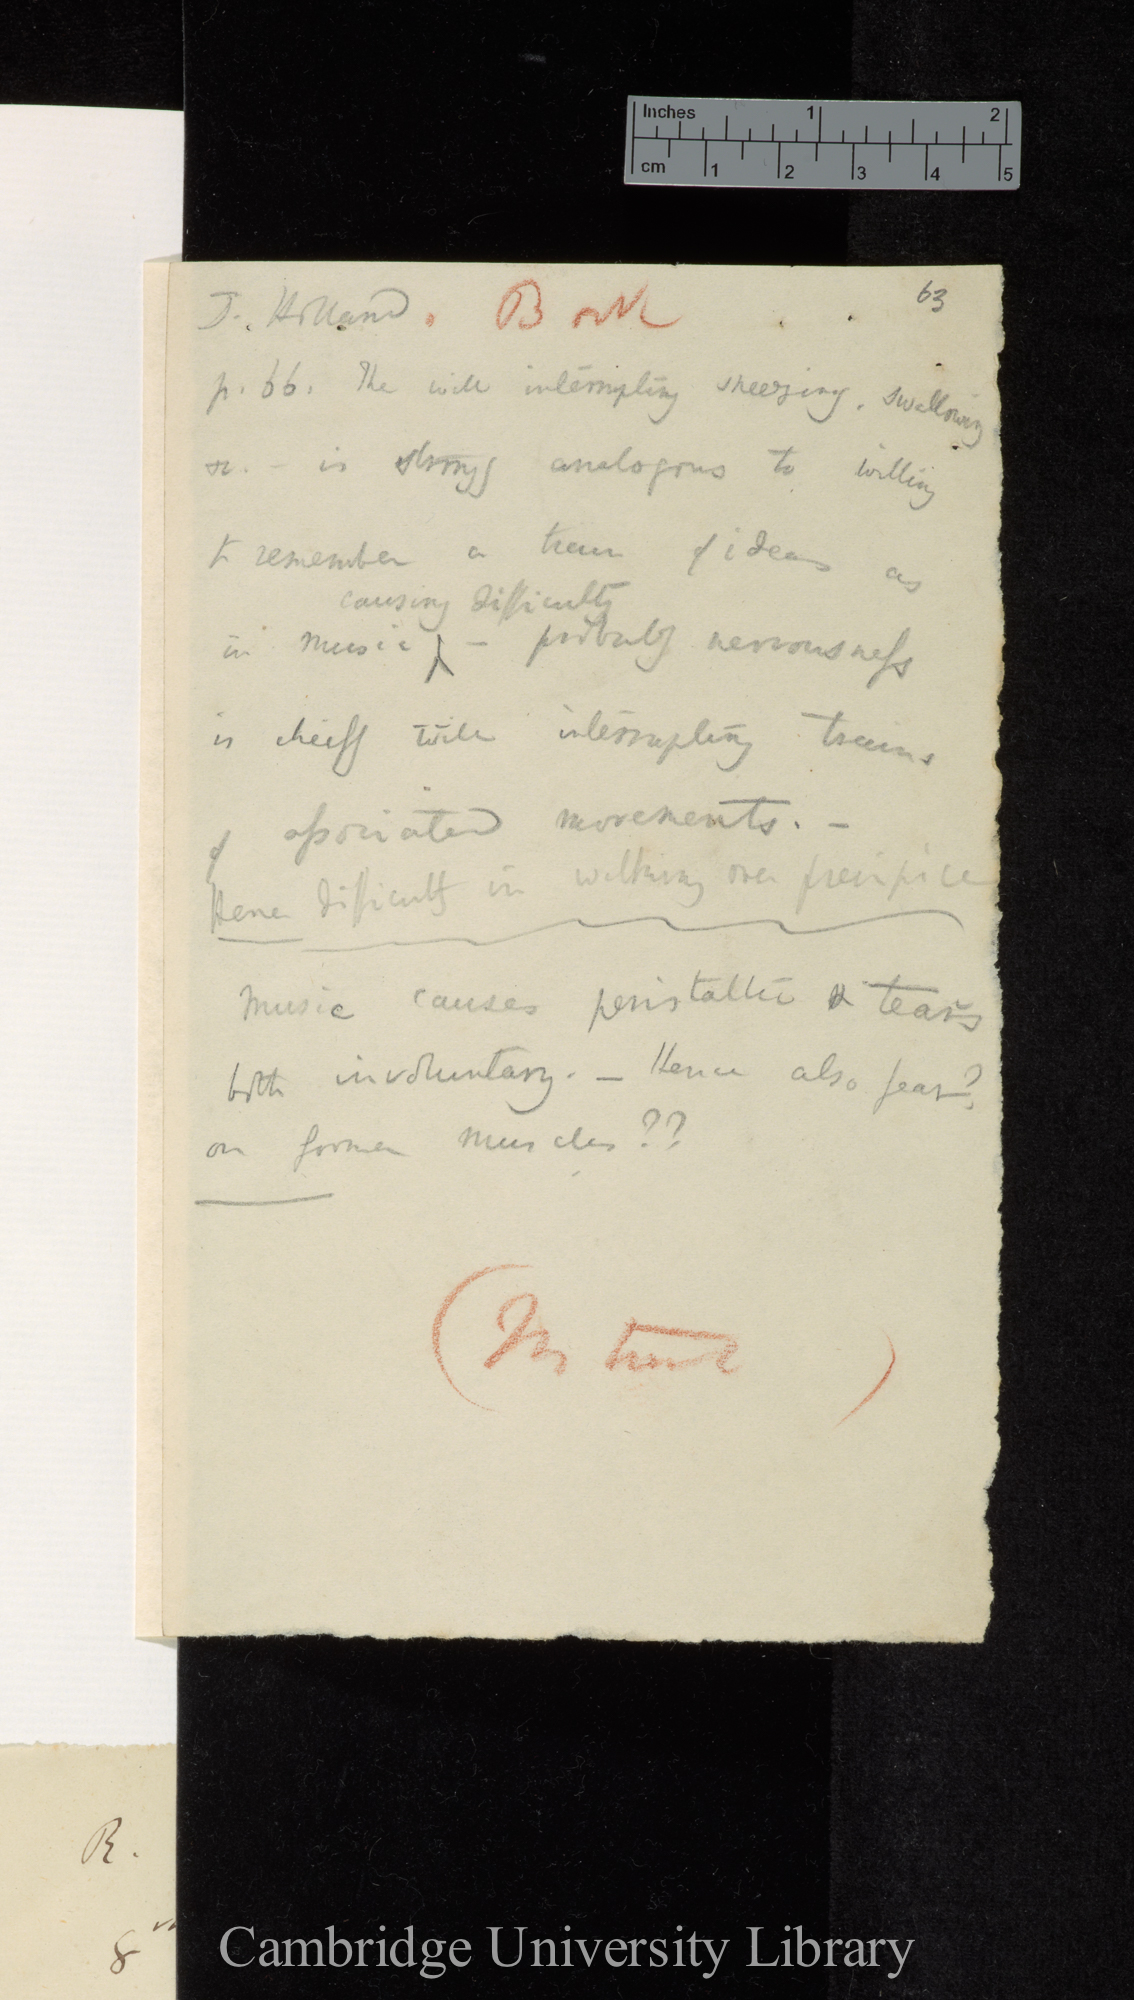 Inches 1 2
cm 1 2 3 4 5
63
J. Holland. Book
p. 66. The will interrupting sneezing, swallowing
&c. – is strongly analogous to willing
to remember a train of ideas as
causing difficulty
in music – probably nervousness
is chiefly will interrupting trains
of associated movements. –
Hence difficulty in walking over precipice
Music causes peristaltic & tears
both involuntary. – Hence also fear?
on former muscles??
R.
8
Cambridge University Library